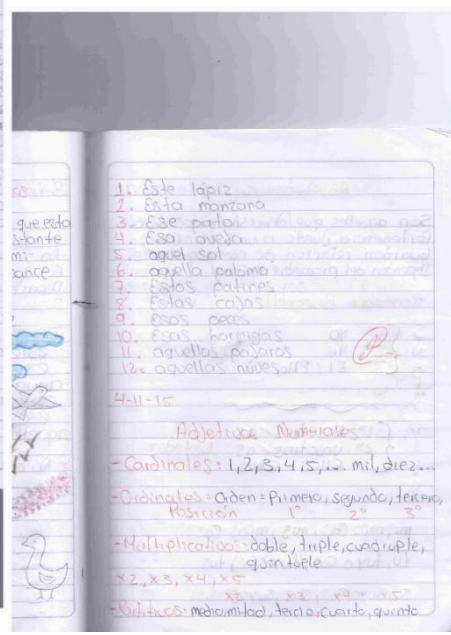 que esta
1. Este lápiz
2. Esta manzana
3. Ese pato
4. Esa oveja
5. aquel sol
6. aquella paloma
7. Estos patines
8. Estas cajas
9. Esos peces
10. Esas hormigas
11. aquellos pájaros
12. aquellas nuves
4-11-15
Adjetivos Numerales
-Cardinales: 1,2,3,4,5,... mil, diez...
-Ordinales= Orden= Primero, segundo, tercero,
Posición 1° 2° 3°
-Multiplicativo: doble, triple, cuadruple,
quintuple
x2, x3, x4, x5
x2 x3 x4 x5
-Partitivos: medio, mitad, tercio, cuarto, quinto